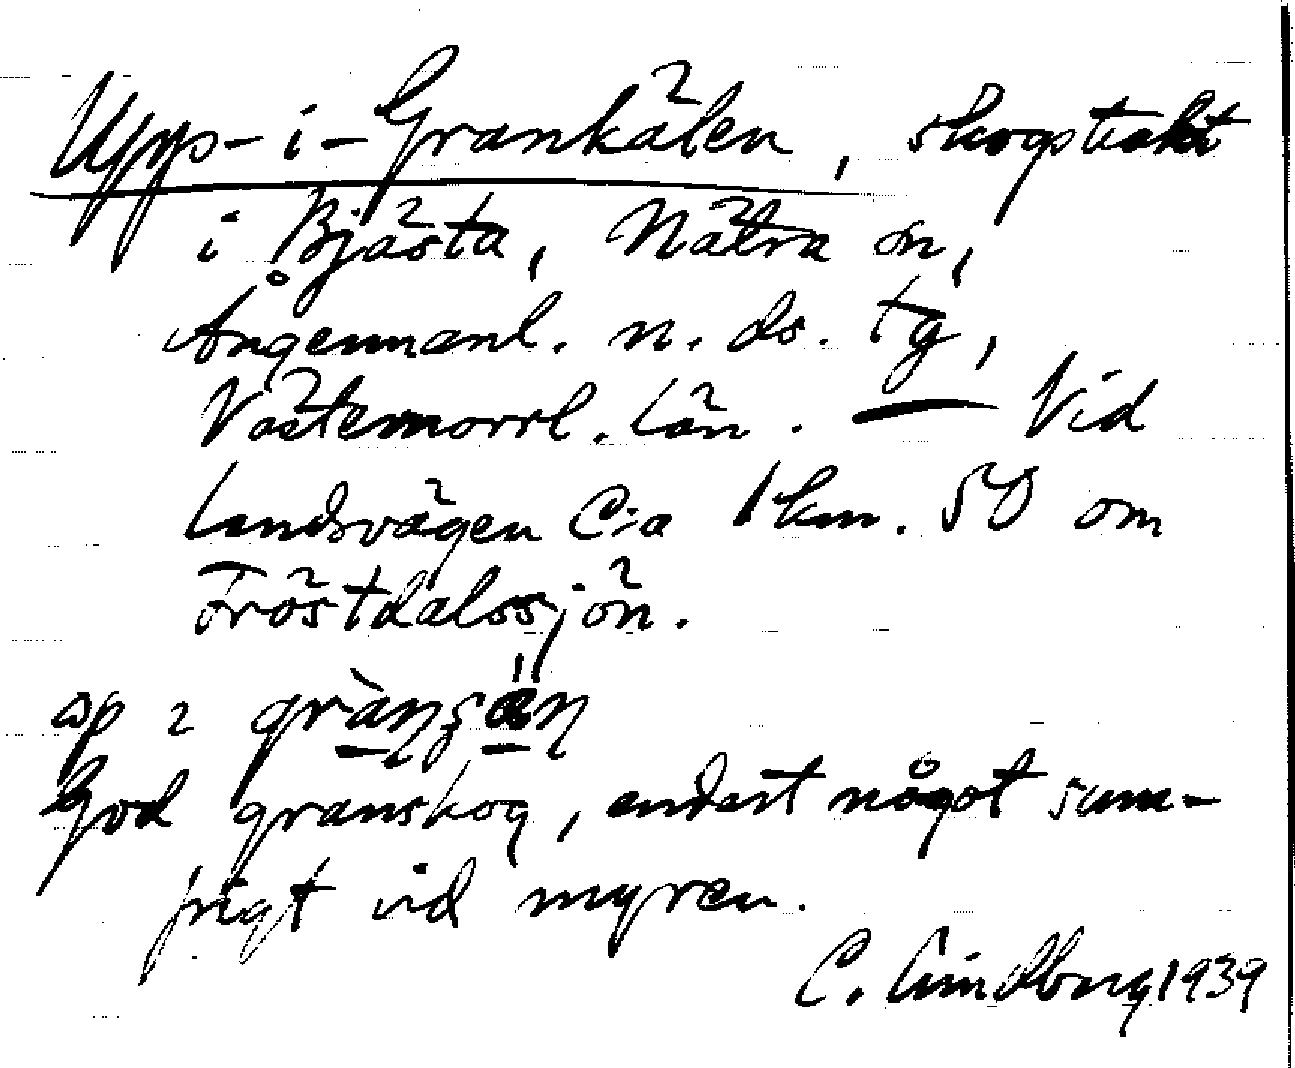 Upp-i-Grankälen, skogstrakt
i Bjästa, Nätra sn,
Ångermanl. n. ds. tg,
Västernorrl. län. — Vid
landsvägen C:a 1 km. SO om
Tröstdalssjön.
God granskog, endast något sum-
pigt vid myren.
C. Lindberg 1939